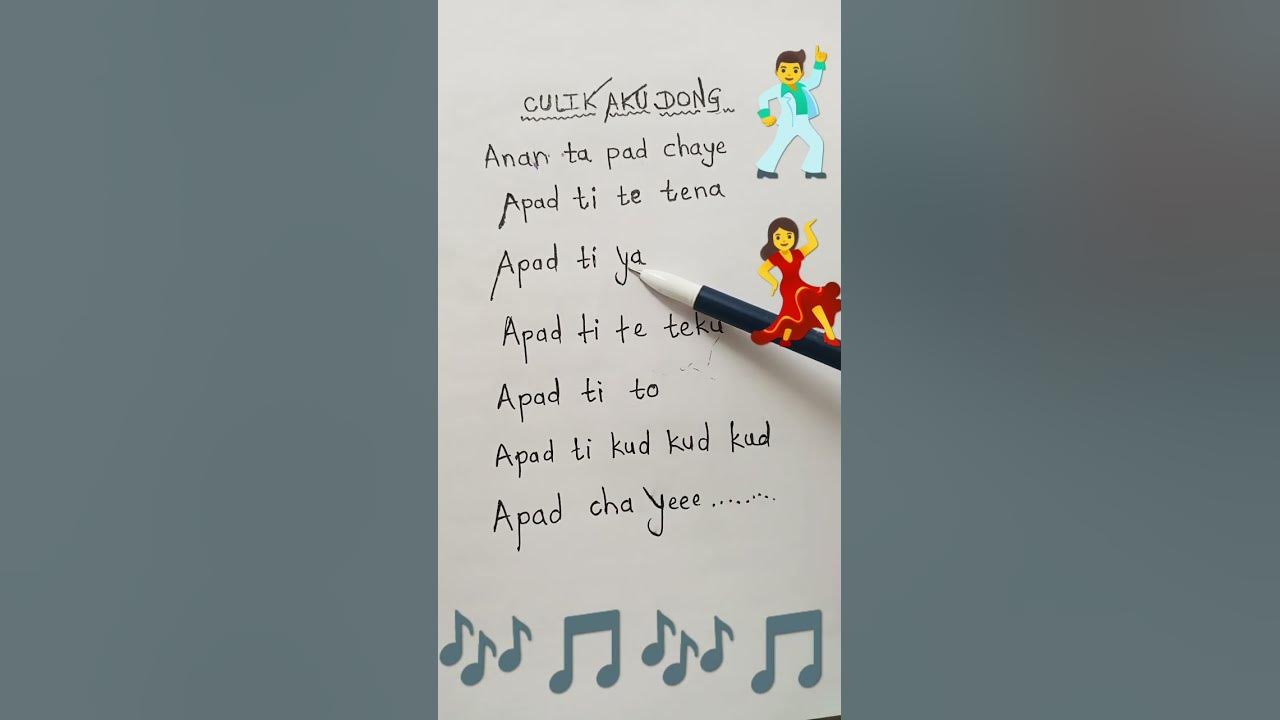 CULIK AKU DONG..
Anan ta pad chaye
Apad ti te tena
Apad ti ya
Apad ti te teku
Apad ti to
Apad ti kud kud kud
Apad cha yeee.........